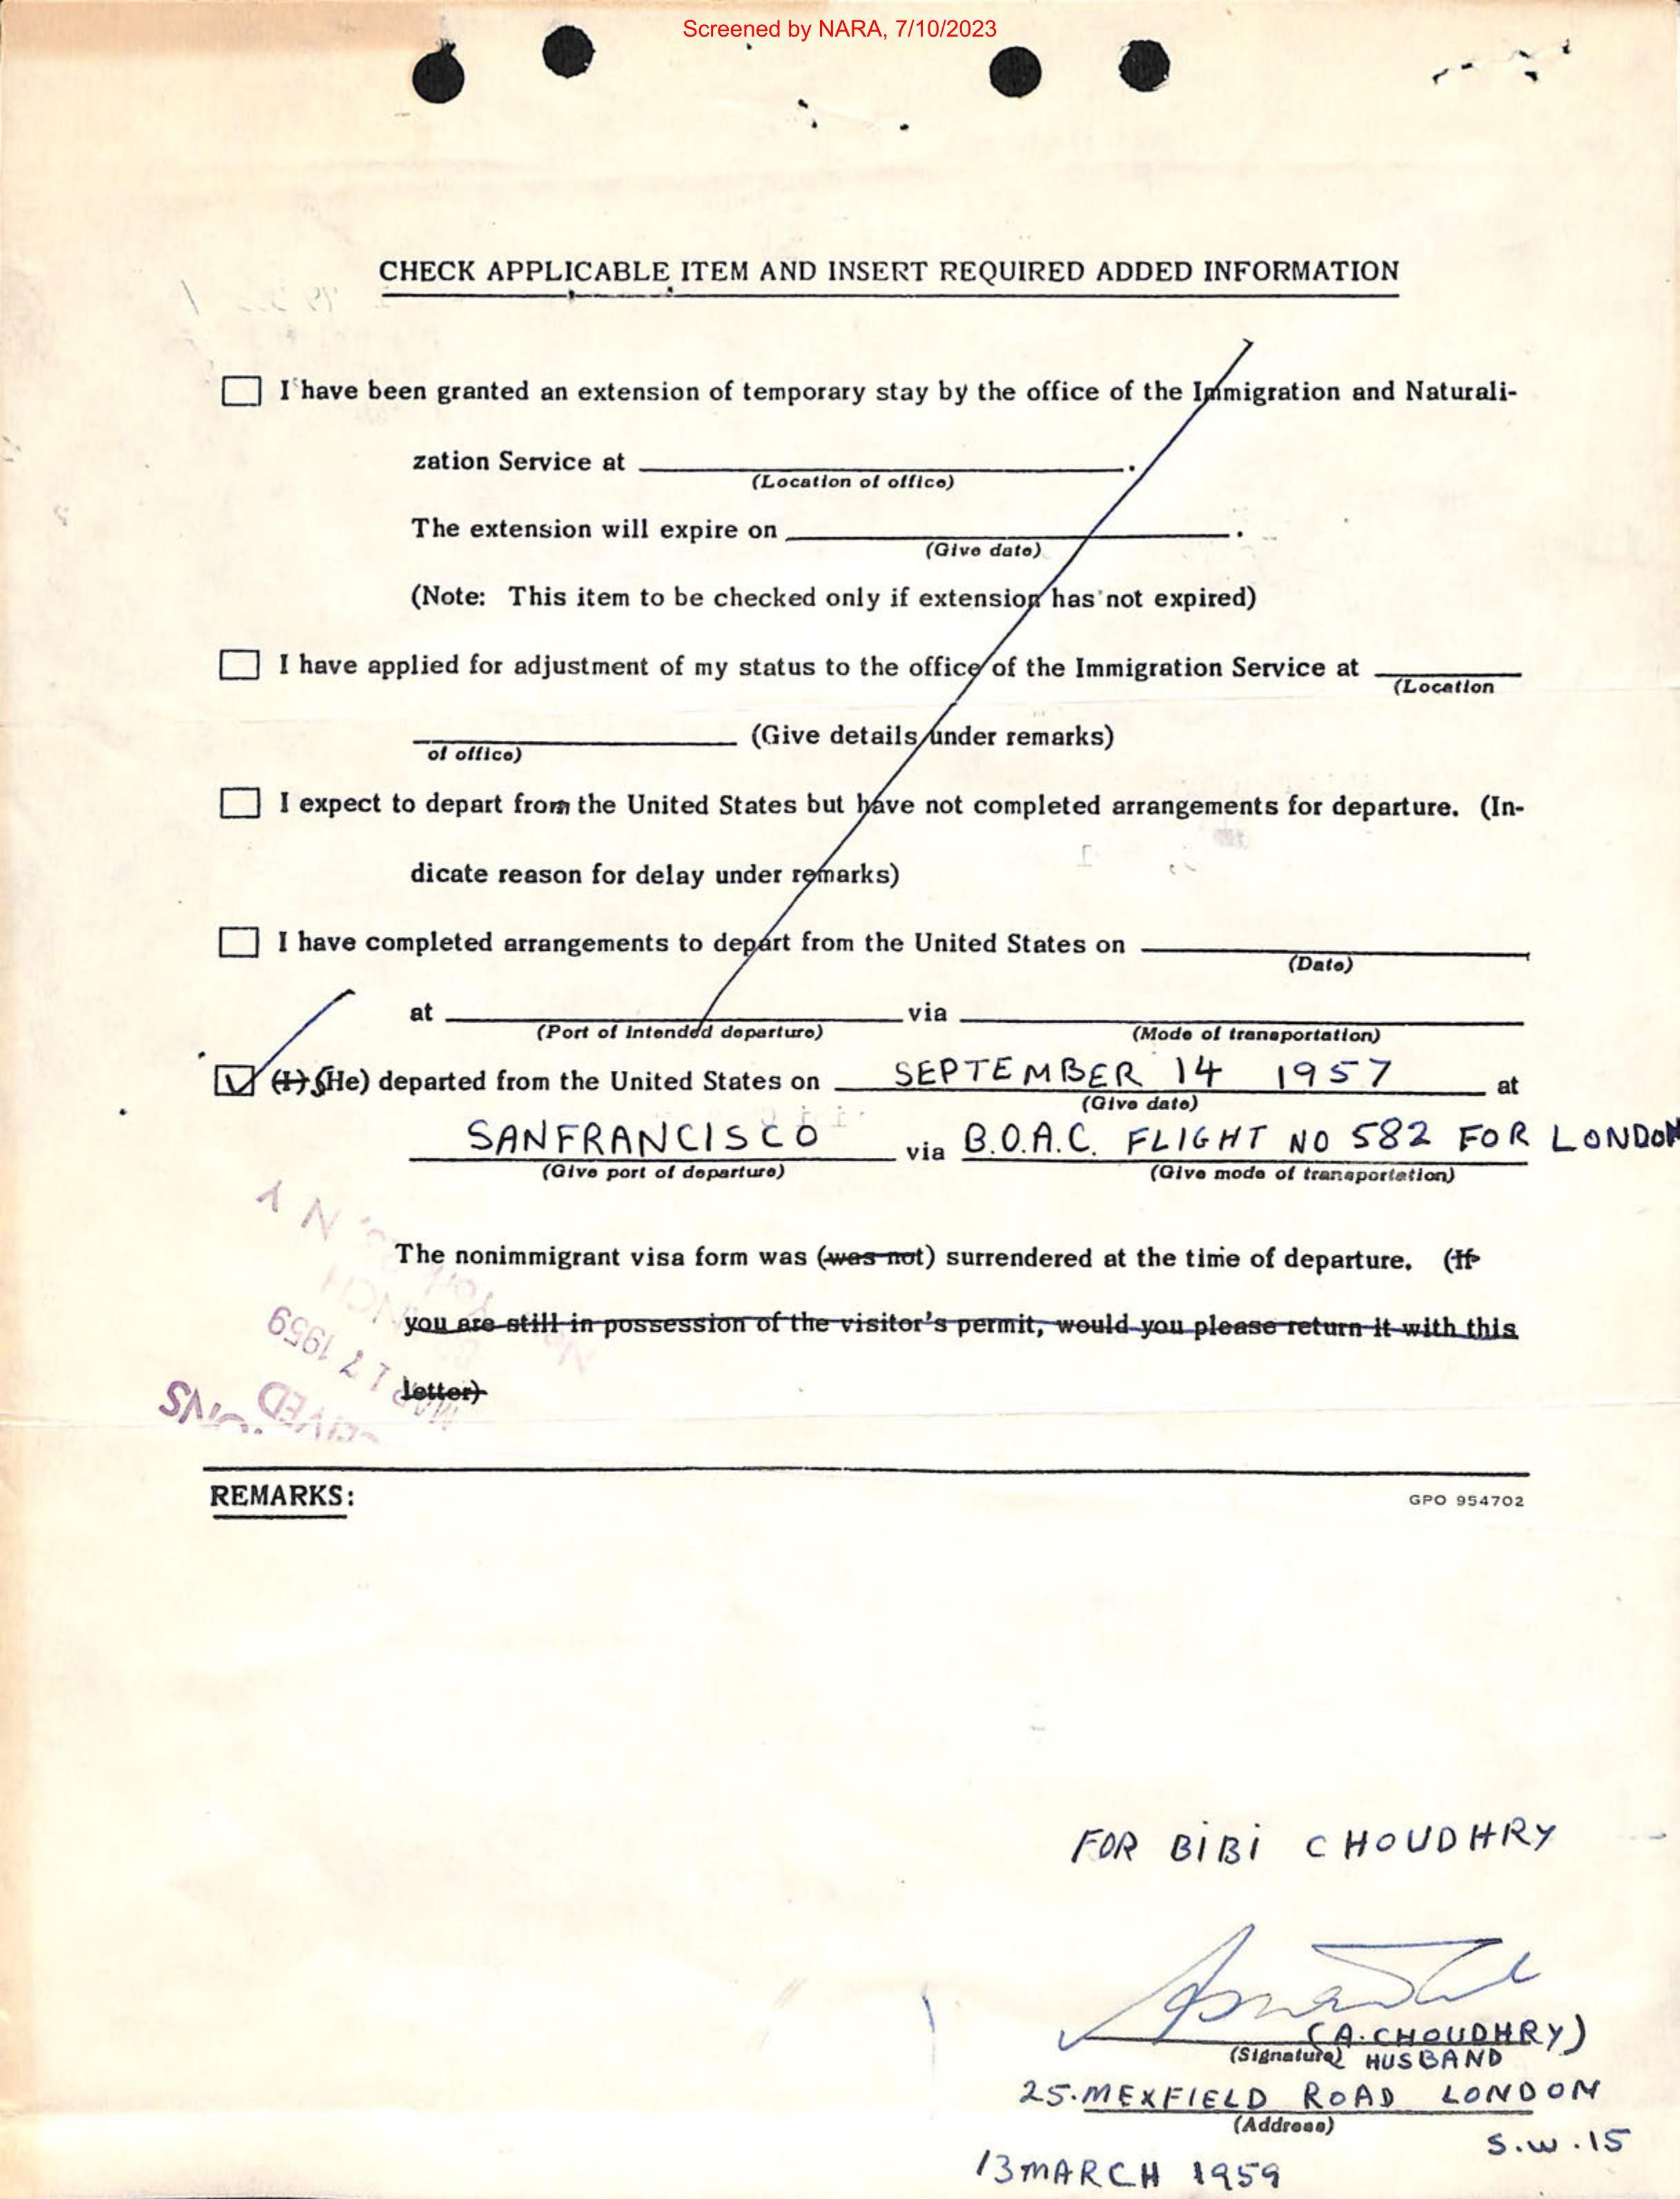 Screened by NARA, 7/10/2023
CHECK APPLICABLE ITEM AND INSERT REQUIRED ADDED INFORMATION
I have been granted an extension of temporary stay by the office of the Immigration and Naturali-
zation Service at
(Location of office)
The extension will expire on
(Give date)
(Note: This item to be checked only if extension has not expired)
I have applied for adjustment of my status to the office of the Immigration Service at
(Location
of office)
(Give details under remarks)
I expect to depart from the United States but have not completed arrangements for departure. (In-
dicate reason for delay under remarks)
I have completed arrangements to depart from the United States on
(Date)
at via
(Port of intended departure) (Mode of transportation)
(I) (He) departed from the United States on SEPTEMBER 14 1957 at
(Give date)
SANFRANCISCO via B.O.A.C. FLIGHT NO 582 FOR LONDON
(Give port of departure) (Give mode of transportation)
The nonimmigrant visa form was (was not) surrendered at the time of departure. (If
you are still in possession of the visitor's permit, would you please return it with this
letter)
MAR 17 1959
REMARKS:
GPO 954702
FOR BIBI CHOUDHRY
(A. CHOUDHRY)
(Signature) HUSBAND
25. MEXFIELD ROAD LONDON
(Address)
S.W.15
13 MARCH 1959